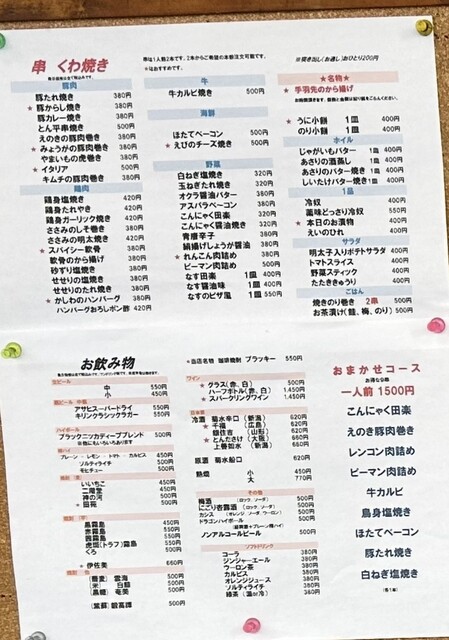 串 くわ焼き
串は1人前2本です。2本からご希望の本数注文可能です。
★はおすすめです。
※焼き出し(お通し)おひとり200円
豚肉
豚たれ焼き 380円
★豚からし焼き 380円
豚カレー焼き 380円
とん平串焼き 500円
えのきの豚肉巻き 380円
★みょうがの豚肉巻き 380円
やまいもの虎巻き 380円
★イタリア 500円
キムチの豚肉巻き 380円
鶏肉
鶏身塩焼き 420円
鶏身たれやき 420円
鶏身ガーリック焼き 420円
ささみのしそ巻き 380円
ささみの明太焼き 380円
★スパイシー軟骨 380円
軟骨のから揚げ 380円
砂ずり塩焼き 380円
せせりの塩焼き 380円
せせりのたれ焼き 380円
★かしわのハンバーグ 380円
ハンバーグおろしポン酢
牛
牛カルビ焼き 500円
海鮮
ほたてベーコン 500円
★えびのチーズ焼き 500円
野菜
白ねぎ塩焼き 320円
玉ねぎたれ焼き 320円
オクラ醤油バター 320円
アスパラベーコン 380円
こんにゃく田楽 320円
青唐辛子 320円
絹揚げしょうが醤油 380円
★れんこん肉詰め 380円
ピーマン肉詰め 500円
なす田楽 1皿 400円
なす醤油味 1皿 400円
なすのピザ風 1皿 550円
★名物★
★手羽先のから揚げ
★うに小餅 1皿 400円
のり小餅 1皿 400円
ホイル
じゃがいもバター 1皿 400円
あさりの酒蒸し 1皿 400円
あさりのバター焼き 1皿 400円
しいたけバター焼き 1皿 400円
1品
冷奴 400円
薬味どっさり冷奴 550円
★本日のお漬物 400円
えいのひれ 400円
サラダ
明太子入りポテトサラダ 400円
トマトスライス 400円
野菜スティック 400円
たたききゅうり 400円
ごはん
焼きのり巻き 2串 500円
お茶漬け(鮭、梅、のり) 500円
お飲み物
★当店名物 珈琲焼酎 ブラッキー 550円
生ビール
中 550円
小 450円
瓶ビール 中瓶
アサヒスーパードライ 550円
キリンクラシックラガー 550円
ハイボール
ブラックニッカディープブレンド 500円
酎ハイ
プレーン・レモン・トマト・カルピス 450円
ソルティライチ 450円
モヒチュー 500円
いいちこ 450円
二階堂 450円
神の河 500円
★田苑 500円
黒霧島 450円
赤霧島 500円
茜霧島 500円
虎斑(トラフ)霧島 500円
くろ 500円
★伊佐美 660円
(蕎麦) 雲海 500円
(米) 白鯛 500円
(黒糖) 奄美 500円
(紫蘇) 鍛高譚 500円
ワイン
★グラス(赤、白) 500円
★ハーフボトル(赤、白) 1,450円
★スパークリングワイン 1,450円
日本酒
冷酒 菊水辛口 (新潟) 620円
★千福 (広島) 620円
★初孫吉 (山形) 620円
★とんださけ (大阪) 660円
上善如水 (新潟) 660円
原酒 菊水船口 620円
熱燗 小 450円
大 770円
その他
梅酒 (ロック、ソーダ) 500円
にごり杏露酒 (ロック、ソーダ) 500円
カシス (オレンジ、ソーダ、ウーロン) 500円
ドラゴンハイボール 500円
ノンアルコールビール 500円
ソフトドリンク
コーラ 380円
ジンジャーエール 380円
ウーロン茶 380円
カルピス 380円
オレンジジュース 380円
ソルティライチ 380円
緑茶 (温or冷) 380円
おまかせコース
お得な9串
一人前 1500円
こんにゃく田楽
えのき豚肉巻き
レンコン肉詰め
ピーマン肉詰め
牛カルビ
鳥身塩焼き
ほたてベーコン
豚たれ焼き
白ねぎ塩焼き
(各1本)